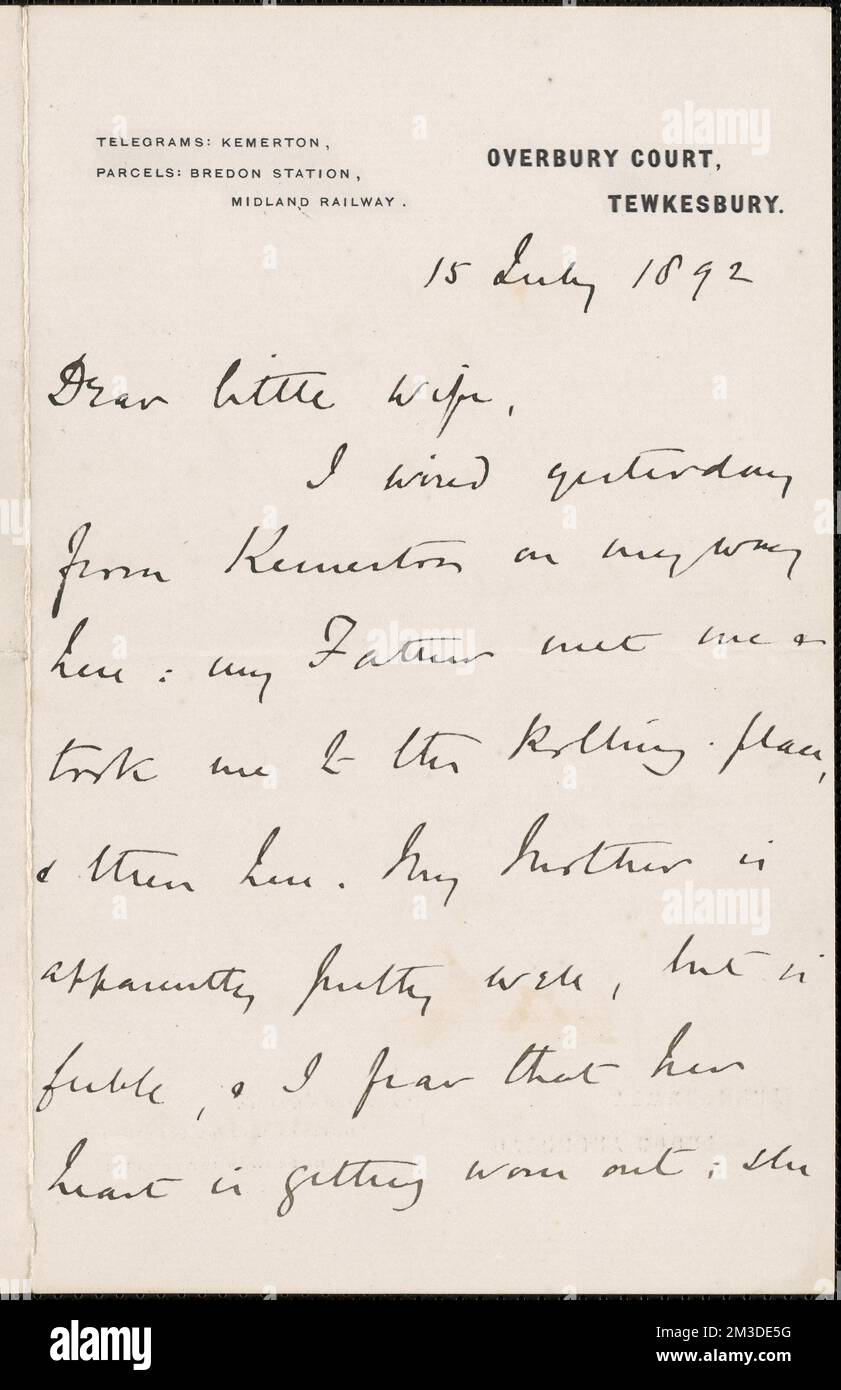 TELEGRAMS: KEMERTON,
PARCELS: BREDON STATION,
MIDLAND RAILWAY.
OVERBURY COURT,
TEWKESBURY.
15 July 1892
Dear little wife,
I wired yesterday
from Kemerton on my way
here: my Father met me &
took me to the place,
& then here. My Mother is
apparently pretty well, but is
feeble, & I fear that her
heart is getting worn out; she
alamy
Image ID: 2M3DE5G
www.alamy.com